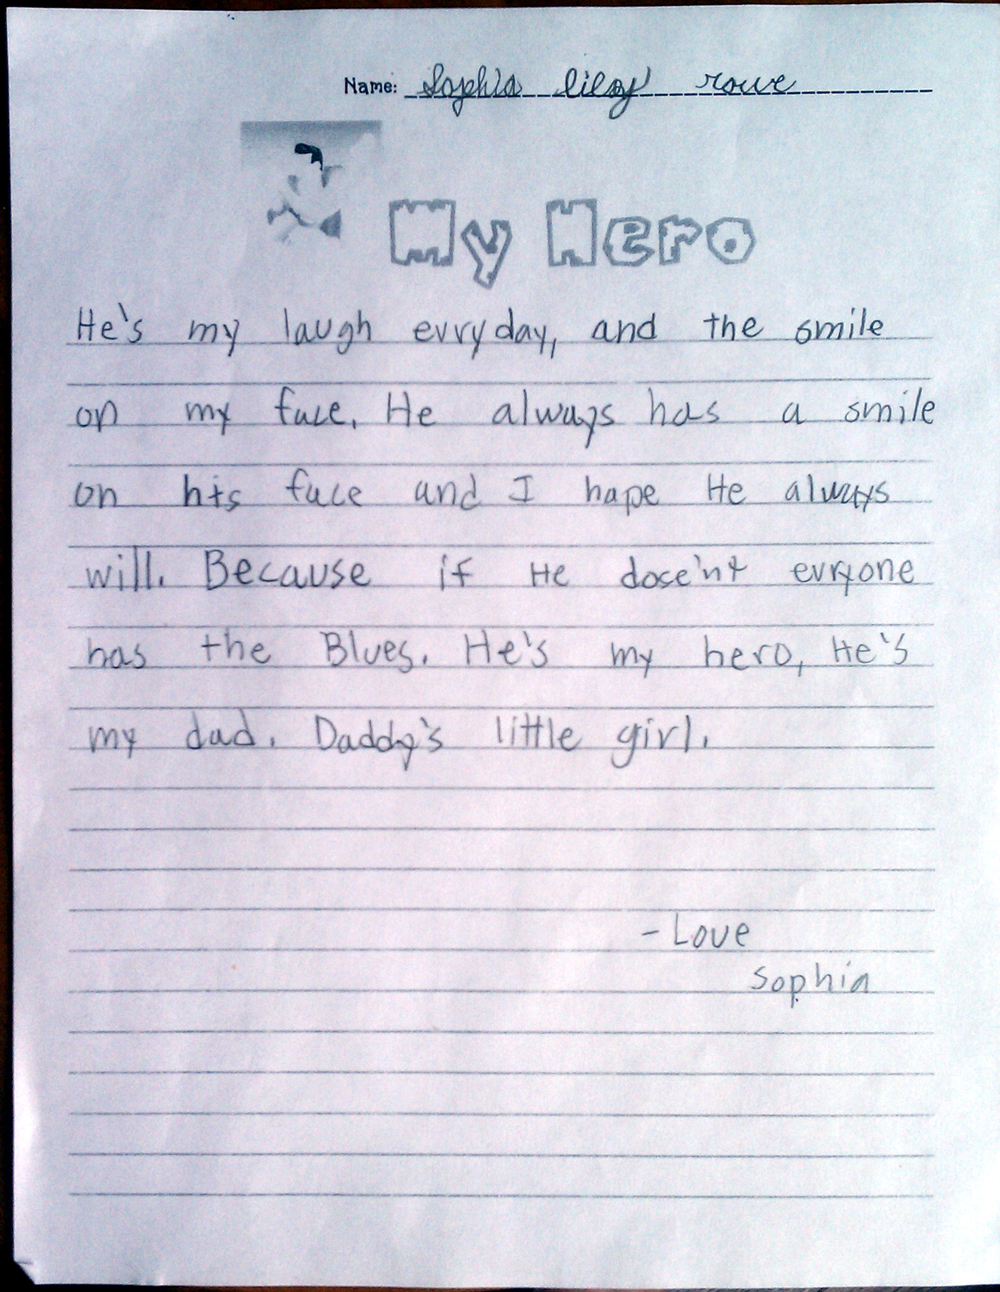 Name: Sophia liloy rowe
My Hero
He's my laugh evryday, and the smile
on my face. He always has a smile
on his face and I hape He always
will. Because if He dose'nt evryone
has the Blues. He's my hero, He's
my dad. Daddy's little girl.
- Love
Sophia